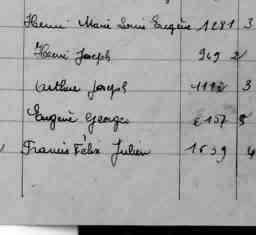 Henri Marie Louis Eugène 1281 3
Henri Joseph 969 2
Arthur Joseph 1192 3
Eugène Georges 2107 3
Francis Félix Julien 1659 4